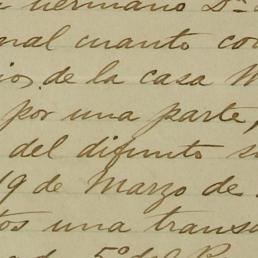 hermano Dn.
nal cuanto co
ios, de la casa M
por una parte,
del difunto
19 de Marzo de
tos una trans
5º del